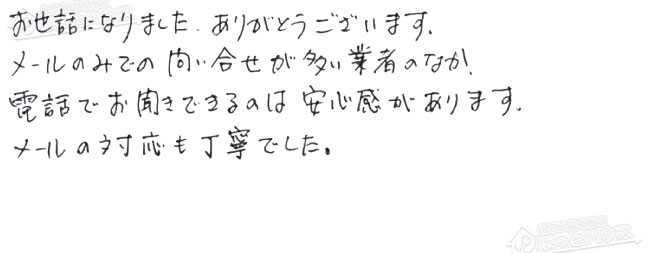 お世話になりました. ありがとうございます.
メールのみでの問い合せが多い業者のなか.
電話でお聞きできるのは安心感があります.
メールの対応も丁寧でした。